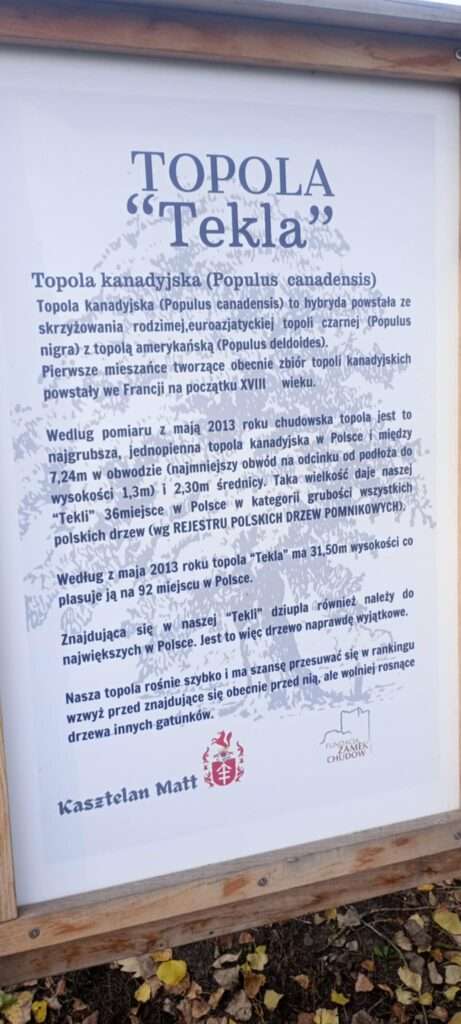 TOPOLA
“Tekla”
Topola kanadyjska (Populus canadensis)
Topola kanadyjska (Populus canadensis) to hybryda powstała ze
skrzyżowania rodzimej,euroazjatyckiej topoli czarnej (Populus
nigra) z topolą amerykańską (Populus deldoides).
Pierwsze mieszańce tworzące obecnie zbiór topoli kanadyjskich
powstały we Francji na początku XVIII wieku.
Wedlug pomiaru z mają 2013 roku chudowska topola jest to
najgrubsza, jednopienna topola kanadyjska w Polsce i między
7,24m w obwodzie (najmniejszy obwód na odcinku od podłoża do
wysokości 1,3m) i 2,30m średnicy. Taka wielkość daje naszej
“Tekli” 36miejsce w Polsce w kategorii grubości wszystkich
polskich drzew (wg REJESTRU POLSKICH DRZEW POMNIKOWYCH).
Według z maja 2013 roku topola “Tekla” ma 31,50m wysokości co
plasuje ją na 92 miejscu w Polsce.
Znajdująca się w naszej “Tekli” dziupla również należy do
największych w Polsce. Jest to więc drzewo naprawdę wyjątkowe.
Nasza topola rośnie szybko i ma szansę przesuwać się w rankingu
wzwyż przed znajdujące się obecnie przed nią, ale wolniej rosnące
drzewa innych gatunków.
Kasztelan Matt
FUNDACJA
ZAMEK
CHUDÓW